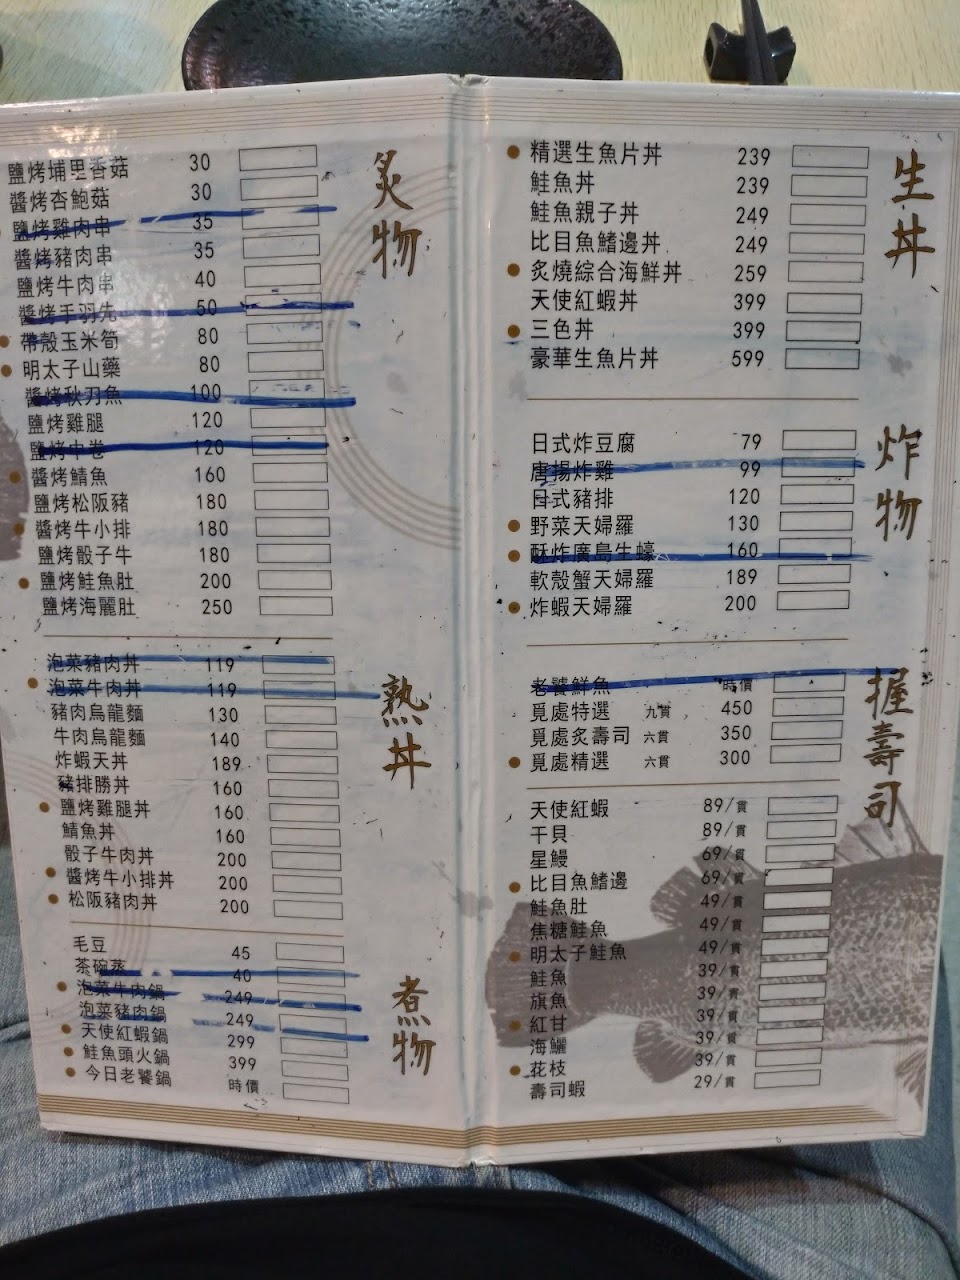 炙物
鹽烤埔里香菇 30
醬烤杏鮑菇 30
鹽烤雞肉串 35
醬烤豬肉串 35
鹽烤牛肉串 40
醬烤手羽先 50
帶殼玉米筍 80
明太子山藥 80
醬烤秋刀魚 100
鹽烤雞腿 120
鹽烤中卷 120
醬烤鯖魚 160
鹽烤松阪豬 180
醬烤牛小排 180
鹽烤骰子牛 180
鹽烤鮭魚肚 200
鹽烤海鱺肚 250
熟丼
泡菜豬肉丼 119
泡菜牛肉丼 119
豬肉烏龍麵 130
牛肉烏龍麵 140
炸蝦天丼 189
豬排勝丼 160
鹽烤雞腿丼 160
鯖魚丼 160
骰子牛肉丼 200
醬烤牛小排丼 200
松阪豬肉丼 200
煮物
毛豆 45
茶碗蒸 40
泡菜牛肉鍋 249
泡菜豬肉鍋 249
天使紅蝦鍋 299
鮭魚頭火鍋 399
今日老饕鍋 時價
生丼
精選生魚片丼 239
鮭魚丼 239
鮭魚親子丼 249
比目魚鰭邊丼 249
炙燒綜合海鮮丼 259
天使紅蝦丼 399
三色丼 399
豪華生魚片丼 599
炸物
日式炸豆腐 79
唐揚炸雞 99
日式豬排 120
野菜天婦羅 130
酥炸廣島生蠔 160
軟殼蟹天婦羅 189
炸蝦天婦羅 200
握壽司
老饕鮮魚 時價
覓處特選 九貫 450
覓處炙壽司 六貫 350
覓處精選 六貫 300
天使紅蝦 89/貫
干貝 89/貫
星鰻 69/貫
比目魚鰭邊 69/貫
鮭魚肚 49/貫
焦糖鮭魚 49/貫
明太子鮭魚 49/貫
鮭魚 39/貫
旗魚 39/貫
紅甘 39/貫
海鱺 39/貫
花枝 39/貫
壽司蝦 29/貫